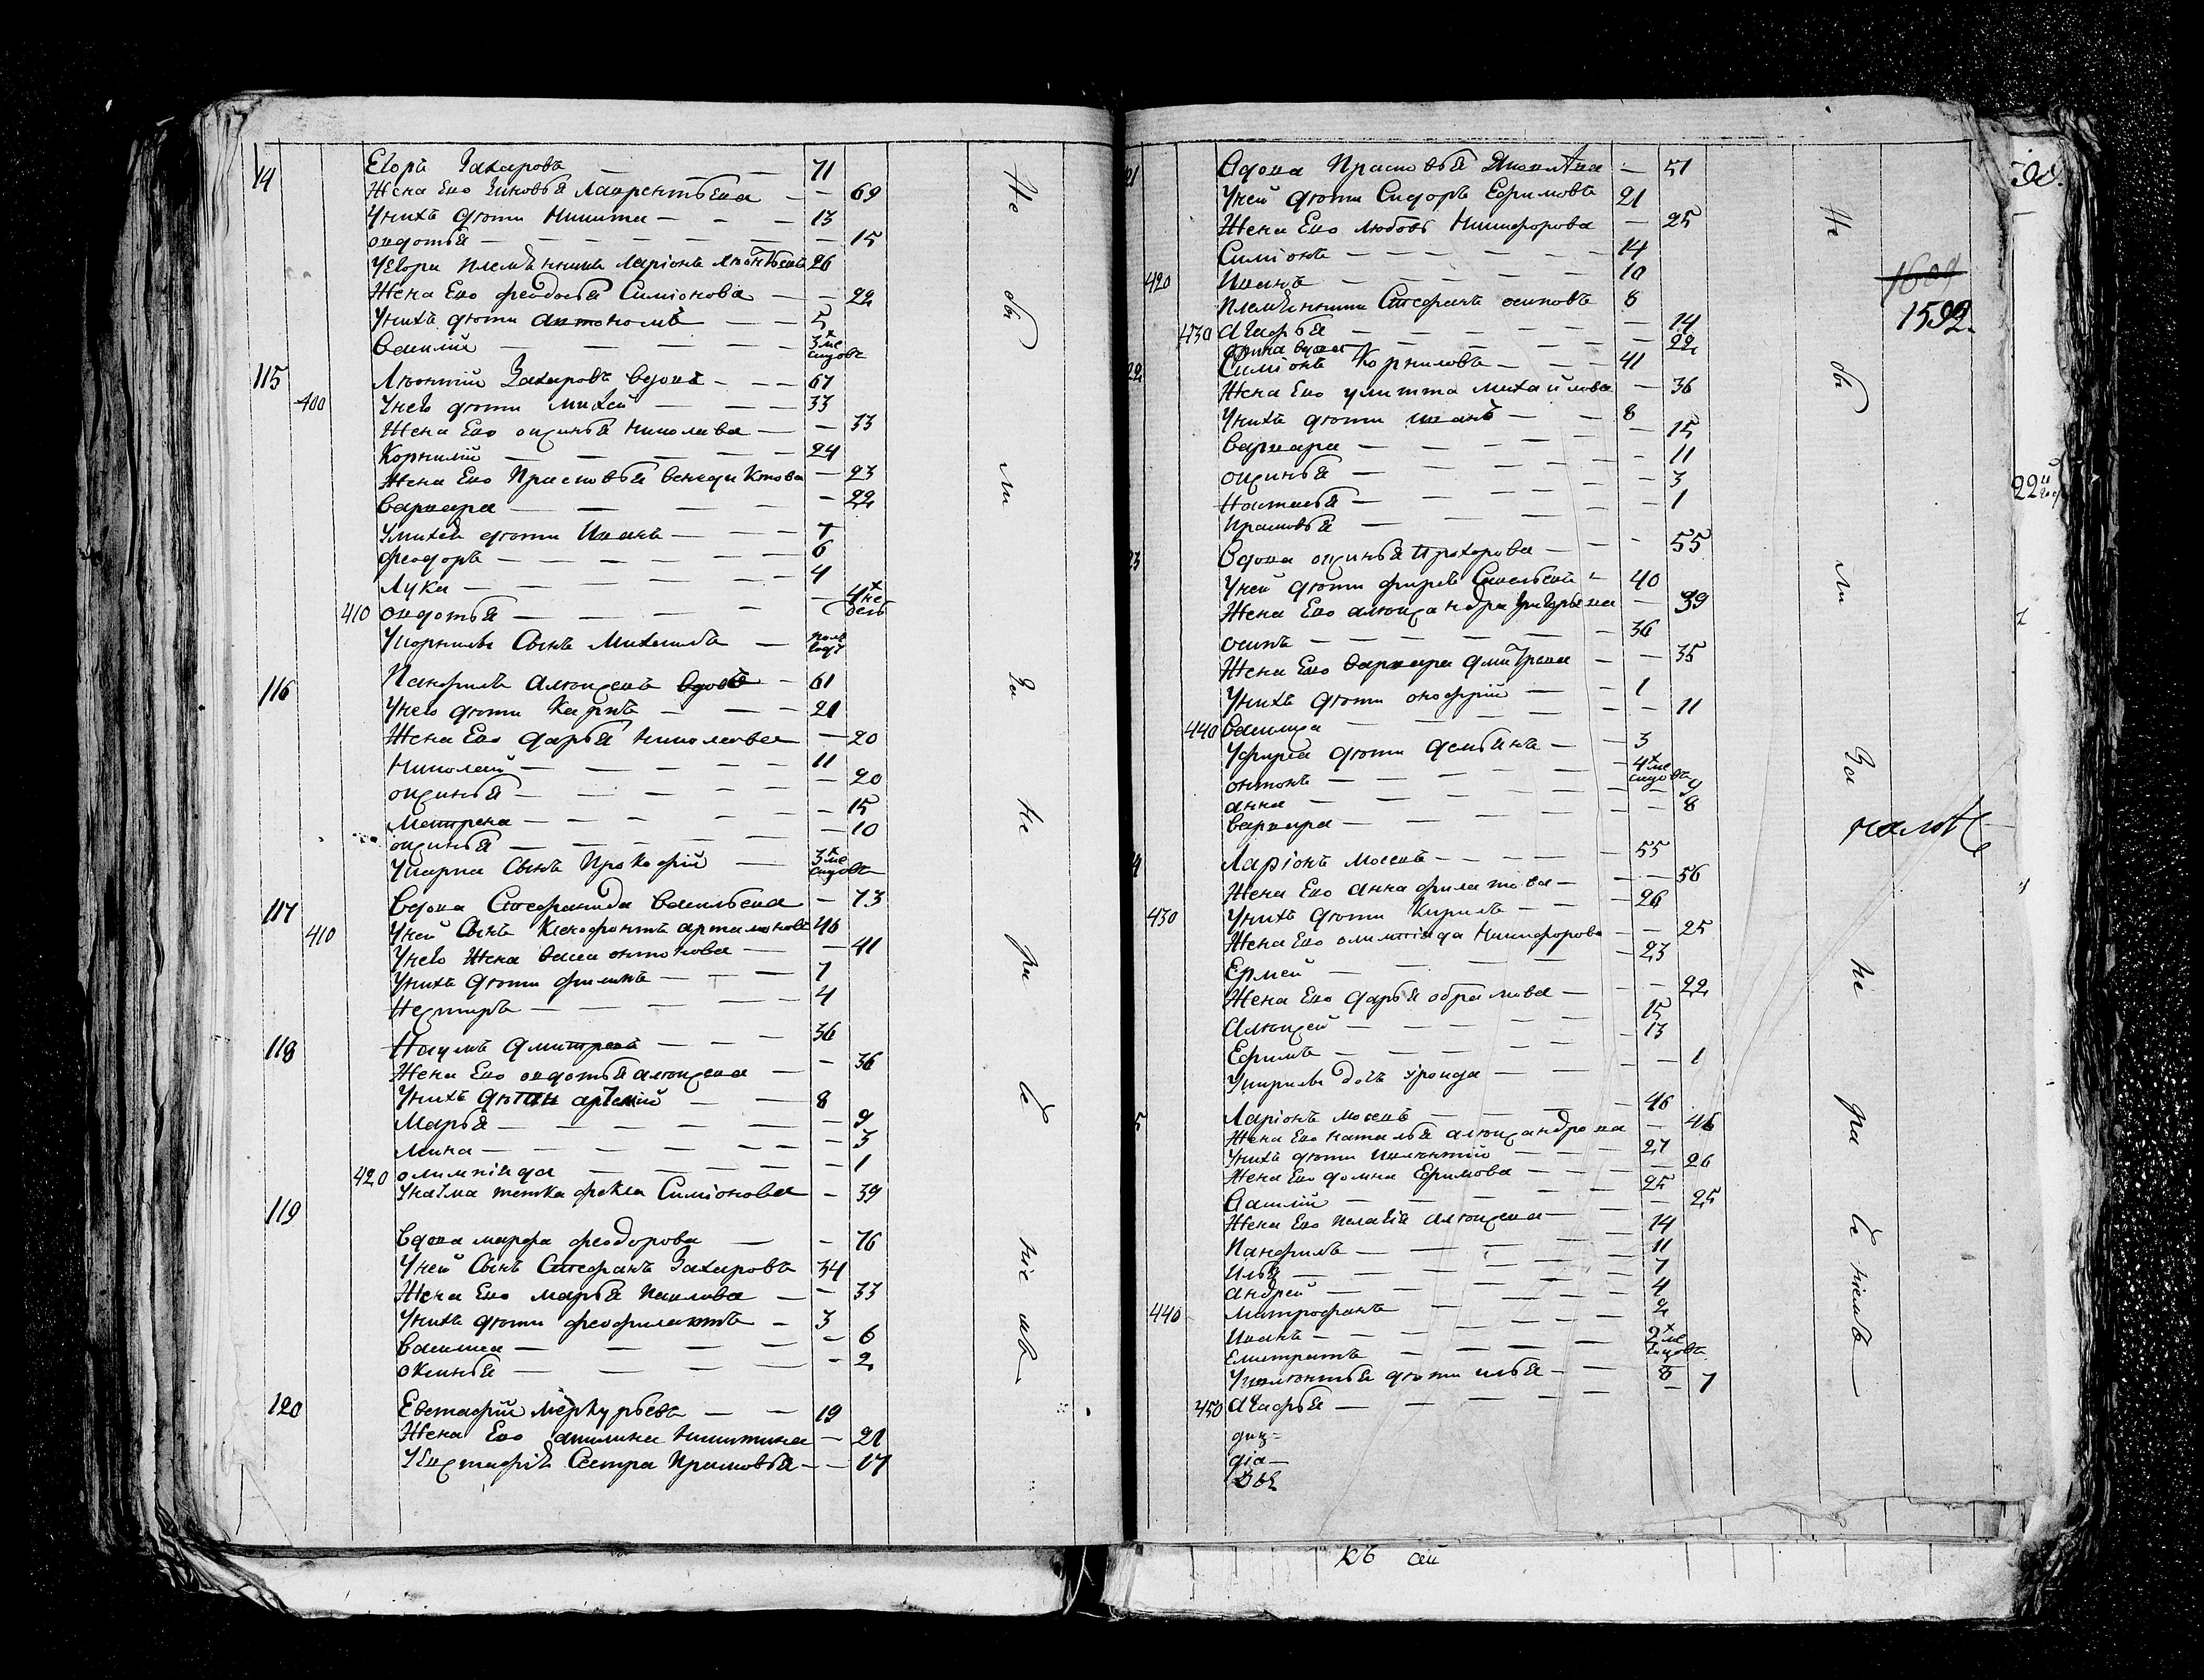 14 Егоръ Захаровъ — — 71
Жена Ево Зиновья Лаврентьева — — 69
Унихъ дѣти Никита — — — 13
овдотья — — — — — — — 15
УЕгора племѣнникъ Ларіонъ Лѣонтьевъ 26
Жена Ево феодосья Симіонова — — 22
Унихъ дѣти антономъ — — 5
Василій — — — — — 3х месицовъ
115 Лѣонтій Захаровъ вдовъ — — — 67
400 Унего дѣти Михей — — — 33
Жена Ево оксинья Николаева — — 33
Корнилій — — — — — 24
Жена Ево Прасковья венедиктова — 23
варвара — — — — — 22
Умихея дѣти Иванъ — — — 7
феодоръ — — — — — 6
Лука — — — — — — 4
410 овдотья — — — — — 4х недель
Укорнилы Сынъ Михаилъ — полъ года
116 Панфилъ алѣксеевъ вдовъ — 61
Унего дѣти Карпъ — — — 21
Жена Ево дарья Николаева — 20
Николай — — — — — 11
оксинья — — — — — — 20
Матрена — — — — — 15
оксинья — — — — — 10
Укарпа Сынъ Прокофій — 3х месицовъ
117 Вдова Стефанида васильева — 73
410 Уней Сынъ Ксенофонтъ артамоновъ 46
Унего Жена васса онтонова — — 41
Унихъ дѣти филипъ — — — 7
Нестиръ — — — — — 4
118 Наумъ дмитревъ — — — 36
Жена Ево овдотья алѣксеева — — 36
Унихъ дѣти артемій — — 8
Марья — — — — — — 9
Мина — — — — — — 3
420 олимпіяда — — — — — 1
Унаума тетка фекла Симіонова — 39
119
Вдова марфа феодорова — — 76
Уней Сынъ Стефанъ Захаровъ 34
Жена Ево марья Павлова — — 33
Унихъ дѣти феофилактъ — 3
василиса — — — — — 6
оксинья — — — — — 2
120 Евстафій меркурьевъ — — 19
Жена Ево акилина Никитина — 21
УЕвстафія Сестра Прасковья — — 17
Не бы ли За не ра Се ніемъ
21 Вдова Прасковья — 51
Уней дѣти Сидоръ Ефимовъ 21
Жена Ево любовь Никифорова — 25
Симіонъ — — — — — 14
420 Иванъ — — — — — 10
племѣнники Стефанъ осиповъ 8
430 агафья — — — — — 14
вдова — — — — 22
22 Симіонъ Корниловъ — — — 41
Жена Ево улитта михайлова — 36
Унихъ дѣти иванъ — — 8
варвара — — — — — 15
оксинья — — — — — 11
Наталья — — — — — 3
прасковья — — — — — 1
23 Вдова оксинья Прохорова — — 55
Уней дѣти фирсъ Савельевъ — 40
Жена Ево алѣксандра григорьева — 39
осипъ — — — — — — 36
Жена Ево варвара дмитрева — — 35
Унихъ дѣти онофрій — — 1
440 василиса — — — — — 11
Уфирса дѣти демьянъ — — 3
онтонъ — — — — — 4х месицовъ
анна — — — — — — 9
варвара — — — — — 8
4 Ларіонъ Мосеевъ — — — — 55
Жена Ево анна филатова — — — 56
430 Унихъ дѣти Кирилъ — — — 26
Жена Ево олимпіяда Никифорова — — 25
Ермей — — — — — 23
Жена Ево дарья обрамова — — — 22
Алѣксей — — — — — 15
Ефимъ — — — — — 13
Укирилы дочь Ироида — — — 1
5 Ларіонъ мосеевъ — — — 46
Жена Ево наталья алѣксандрова — 46
Унихъ дѣти — — — 27
Жена Ево домна Ефимова — — — 26
Василій — — — — — 25
Жена Ево пелагія алѣксеева — — 25
Панфилъ — — — — 14
Илья — — — — — 11
андрей — — — — — 7
440 митрофанъ — — — — 4
Иванъ — — — — — 2
Елистратъ — — — — 2х месицовъ
дѣти илья — — 8
450 агафья — — — — — 7
дья-
діа-
Не бы ли За не ра Се ніемъ
1609
1592.
22й
КЪ ой